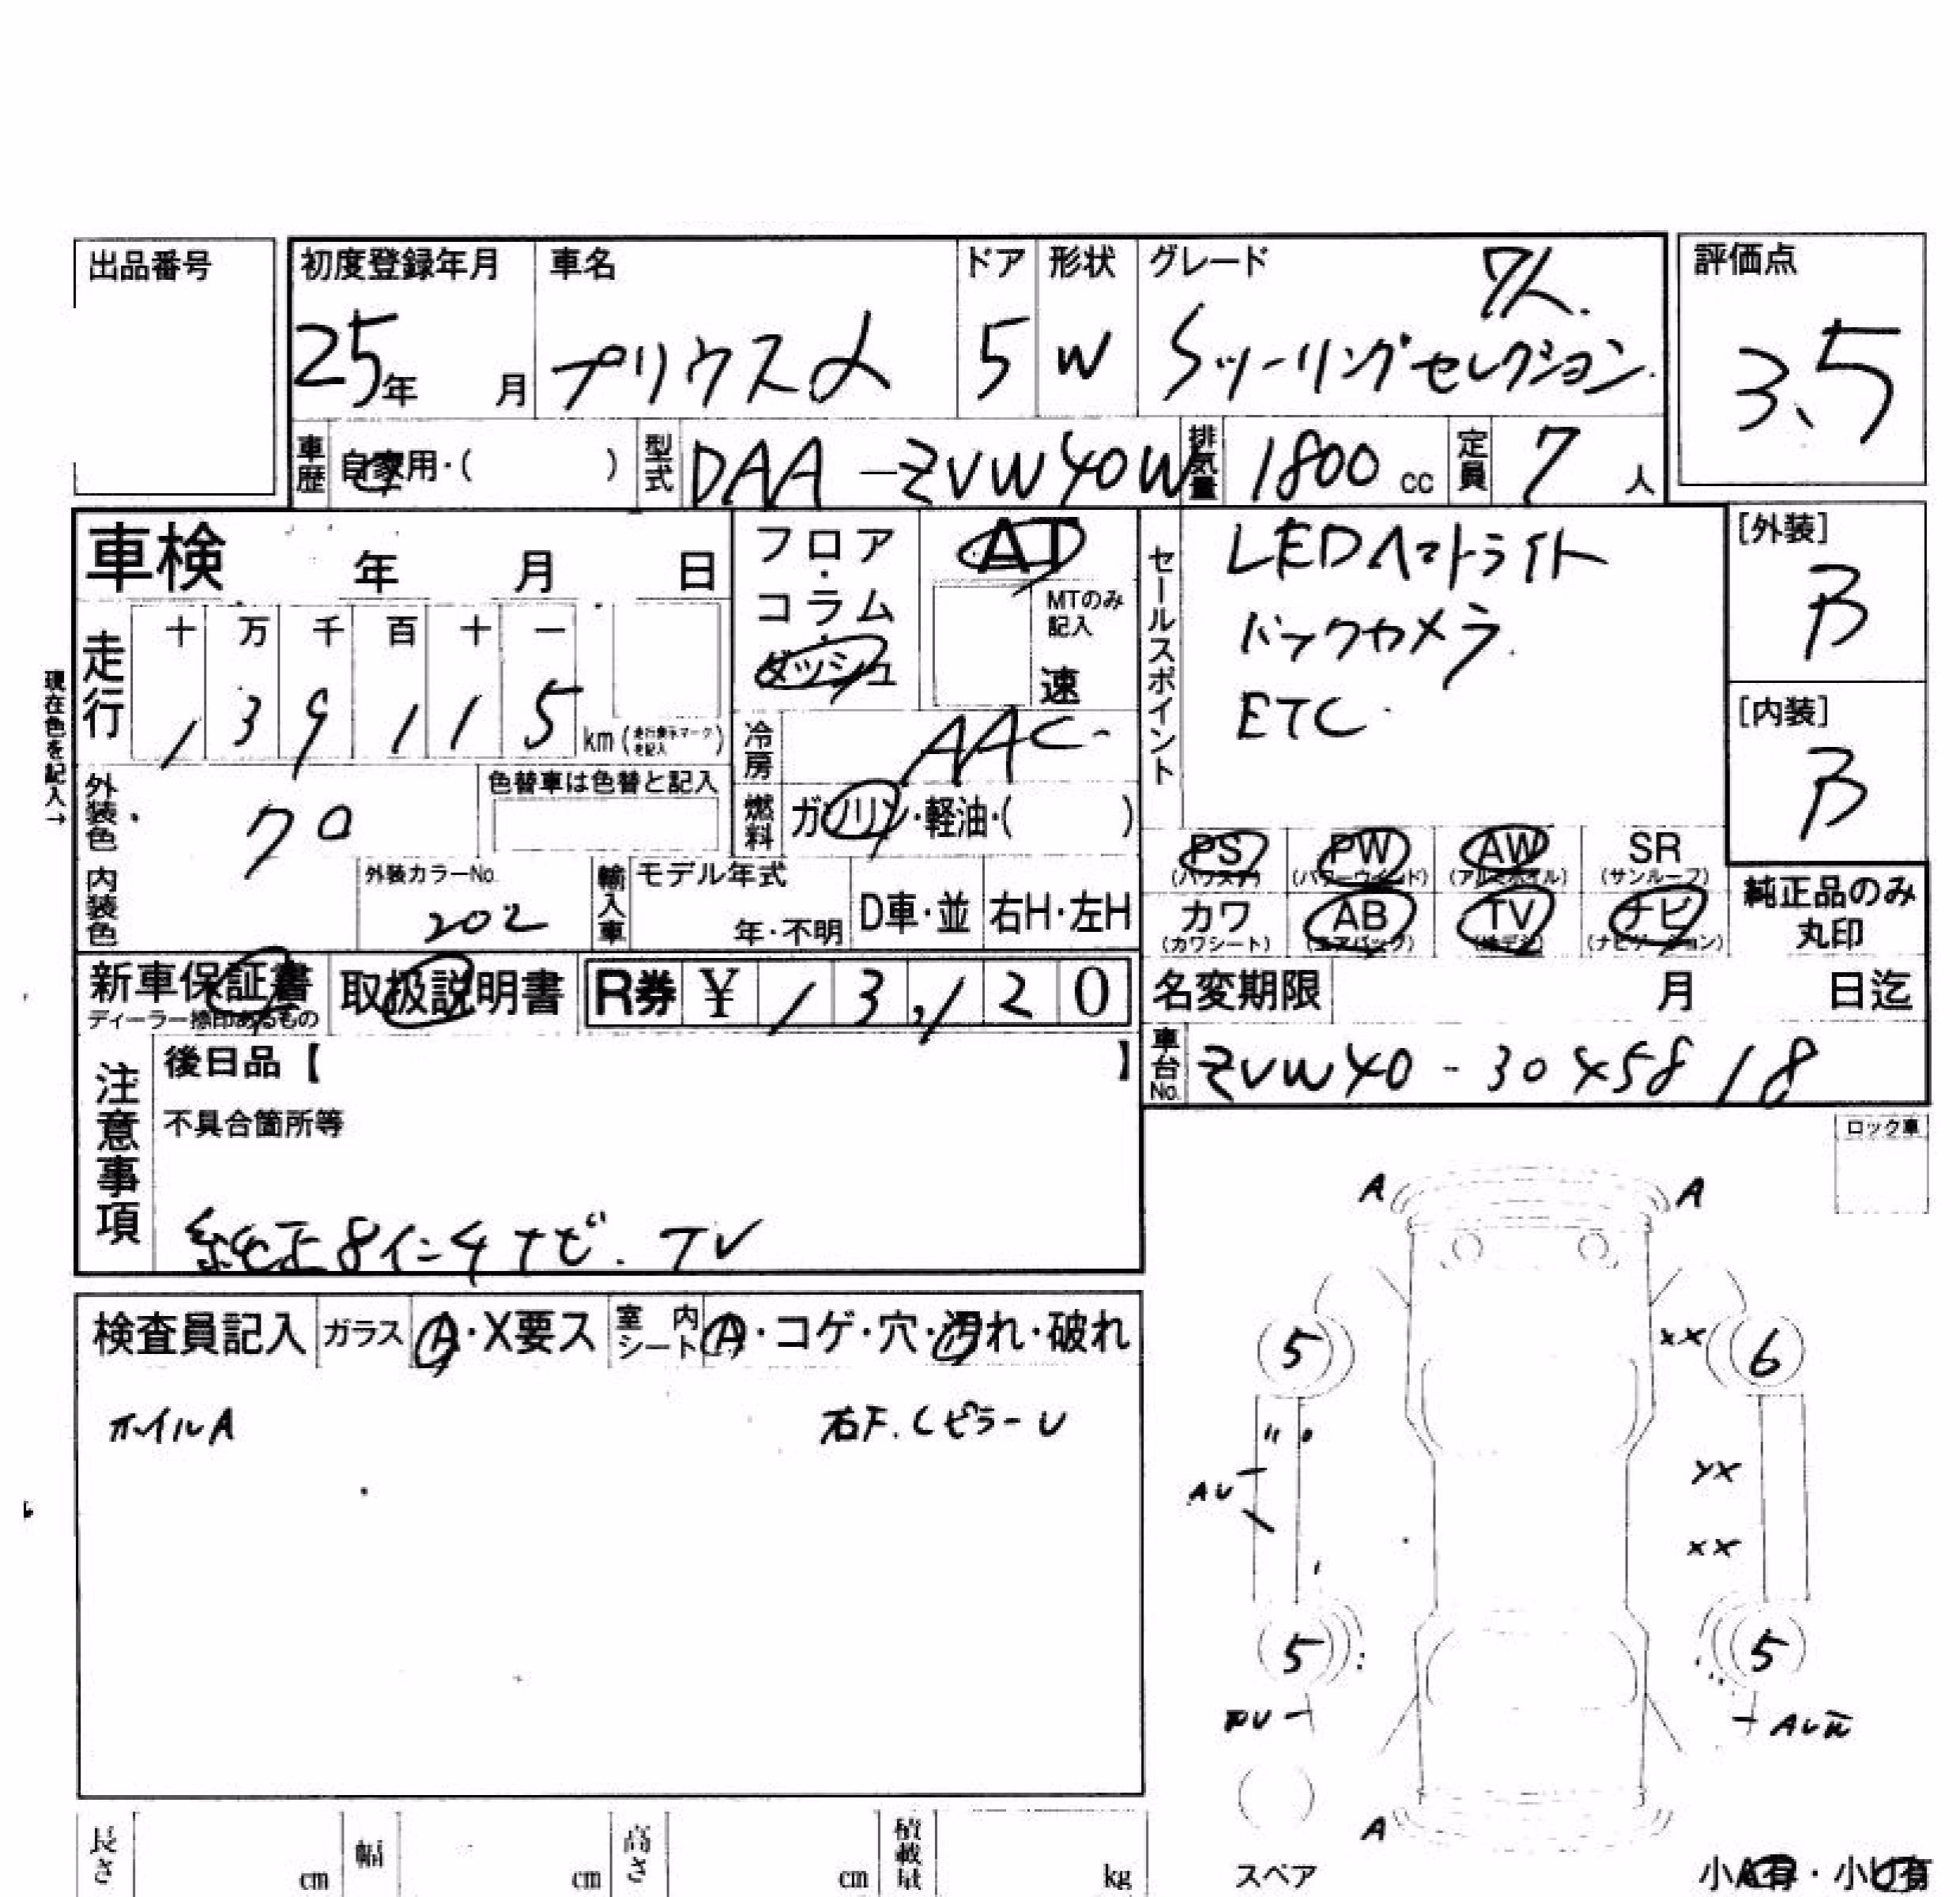 出品番号
初度登録年月 車名 ドア 形状 グレード 7人. 評価点
25年 月 プリウスα 5 W Sツーリングセレクション. 3.5
車歴 自家用・( ) 型式 DAA-ZVW40W 排気量 1800 cc 定員 7 人
車検 年 月 日
フロア・コラム・ダッシュ
AT
MTのみ記入
速
セールスポイント
LEDヘッドライト
バックカメラ.
ETC
[外装]
B
[内装]
B
現在色を記入→
走行 十 万 千 百 十 一
1 3 9 1 1 5 km (走行表示マークを記入)
冷房 AAC
燃料 ガソリン・軽油・( )
外装色 クロ
色替車は色替と記入
内装色
外装カラーNo.
202
輸入車 モデル年式
年・不明 D車・並 右H・左H
PS (パワステ) PW (パワーウインド) AW (アルミホイル) SR (サンルーフ)
カワ (カワシート) AB (エアバック) TV (地デジ) ナビ (ナビゲーション)
純正品のみ
丸印
新車保証書 取扱説明書 R券 ¥ 13,120
ディーラー捺印あるもの
名変期限 月 日迄
車台No. ZVW40-3045818
注意事項
後日品【 】
不具合箇所等
純正8インチナビ. TV
ロック車
検査員記入 ガラス A・X要ス 室内シート A・コゲ・穴・汚れ・破れ
ホイルA 右F.Cピラー U
A A
5 XX 6
AU YX
XX
5 5
A
スペア
小A有・小U有
長さ cm 幅 cm 高さ cm 積載量 kg